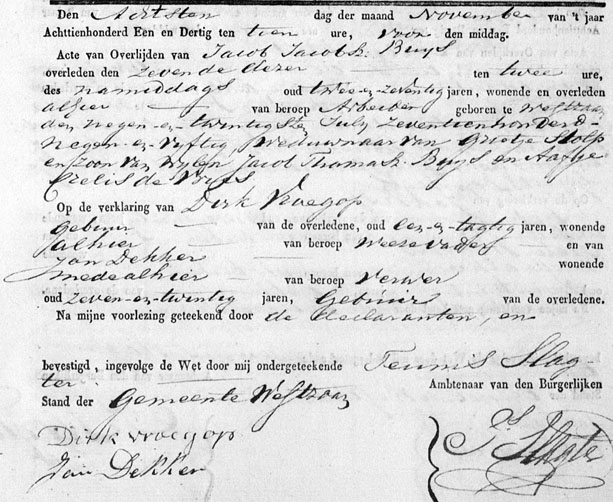 Den Achtsten dag der maand November van 't jaar
Achttienhonderd Een en Dertig ten tien ure, voor den middag.
Acte van Overlijden van Jacob Jacobsz. Buijs
overleden den zevende dezer ten twee ure,
des namiddags oud twee-en-zeventig jaren, wonende en overleden
alhier van beroep Arbeider geboren te Westzaan
den negen-en-twintigste July zeventienhonderd
negen-en-vyftig, Weduwnaar van Grietje Stolp
en zoon van wylen Jacob Thomasz. Buijs en Aafje
Crelis de Vries
Op de verklaring van Dirk Vroegop
gebuur van de overledene, oud een-en-tagtig jaren, wonende
alhier van beroep Weesevader en van
Jan Dekker wonende
mede alhier van beroep Verwer
oud zeven-en-twintig jaren, Gebuur van de overledene.
Na mijne voorlezing geteekend door de declaranten, en
bevestigd, ingevolge de Wet door mij ondergeteekende Teunis Slag
ter Ambtenaar van den Burgerlijken
Stand der Gemeente Westzaan
Dirk vroegop
Jan Dekker